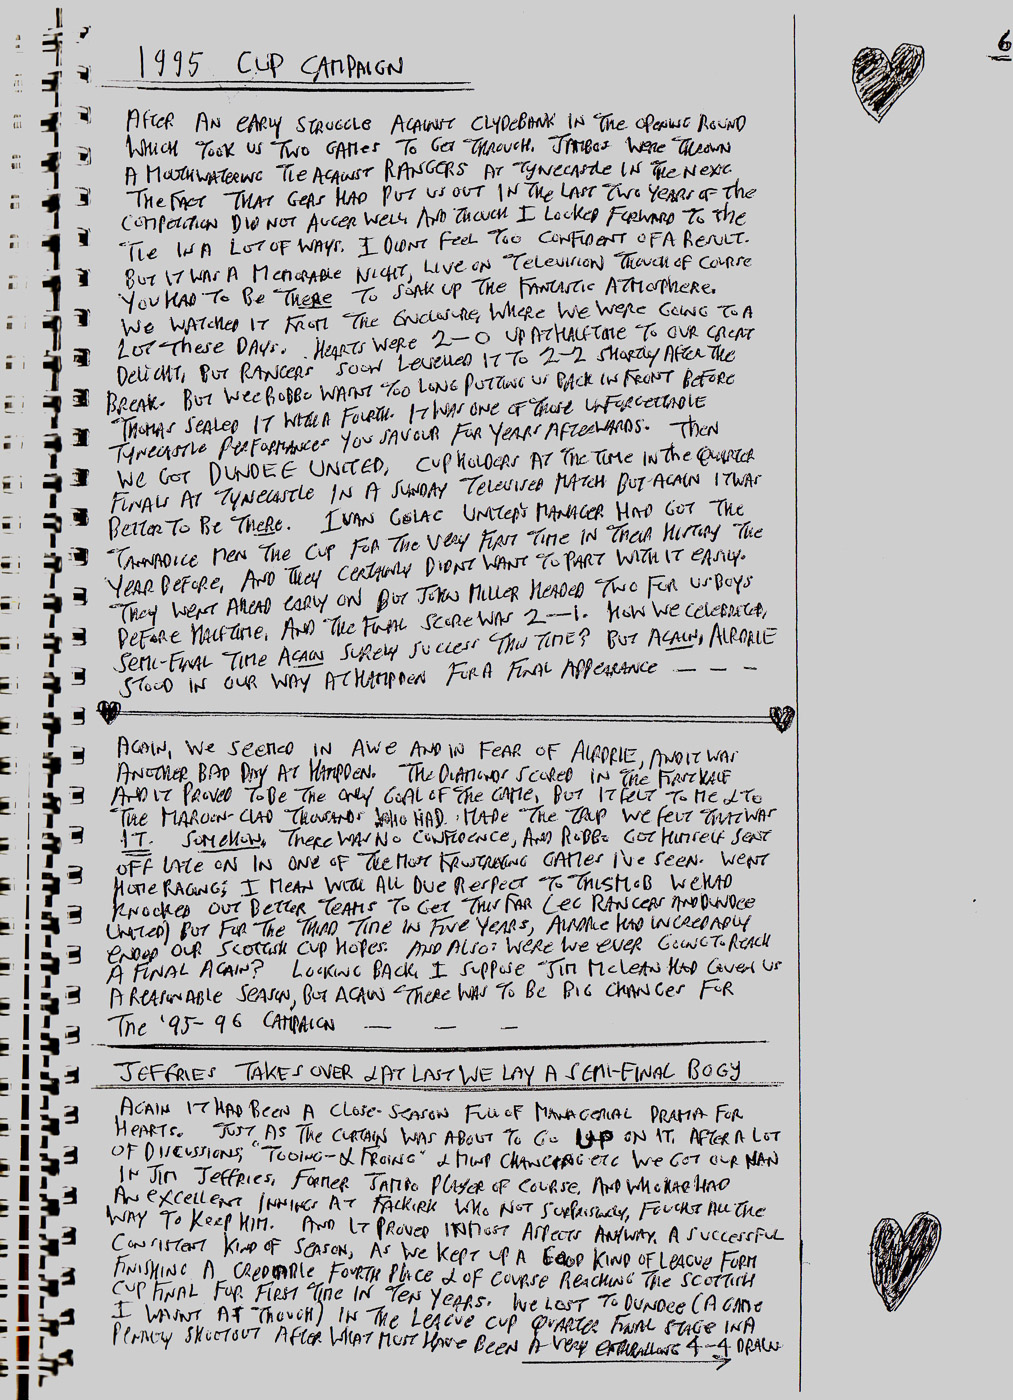 6
1995 CUP CAMPAIGN
AFTER AN EARLY STRUGGLE AGAINST CLYDEBANK IN THE OPENING ROUND
WHICH TOOK US TWO GAMES TO GET THROUGH, JAMBOS WERE THROWN
A MOUTHWATERING TIE AGAINST RANGERS AT TYNECASTLE IN THE NEXT.
THE FACT THAT GERS HAD PUT US OUT IN THE LAST TWO YEARS OF THE
COMPETITION DID NOT AUGER WELL, AND THOUGH I LOOKED FORWARD TO THE
TIE IN A LOT OF WAYS, I DIDNT FEEL TOO CONFIDENT OF A RESULT.
BUT IT WAS A MEMORABLE NIGHT, LIVE ON TELEVISION THOUGH OF COURSE
YOU HAD TO BE THERE TO SOAK UP THE FANTASTIC ATMOSPHERE.
WE WATCHED IT FROM THE ENCLOSURE, WHERE WE WERE GOING TO A
LOT THESE DAYS. HEARTS WERE 2-0 UP AT HALFTIME TO OUR GREAT
DELIGHT, BUT RANGERS SOON LEVELLED IT TO 2-2 SHORTLY AFTER THE
BREAK. BUT WEE ROBBO WASNT TOO LONG PUTTING US BACK IN FRONT BEFORE
THOMAS SEALED IT WITH A FOURTH. IT WAS ONE OF THOSE UNFORGETTABLE
TYNECASTLE PERFORMANCES YOU SAVOUR FOR YEARS AFTERWARDS. THEN
WE GOT DUNDEE UNITED, CUP HOLDERS AT THE TIME IN THE QUARTER
FINALS AT TYNECASTLE IN A SUNDAY TELEVISED MATCH BUT AGAIN IT WAS
BETTER TO BE THERE. IVAN GOLAC UNITED'S MANAGER HAD GOT THE
TANNADICE MEN THE CUP FOR THE VERY FIRST TIME IN THEIR HISTORY THE
YEAR BEFORE, AND THEY CERTAINLY DIDNT WANT TO PART WITH IT EASILY.
THEY WENT AHEAD EARLY ON BUT JOHN MILLER HEADED TWO FOR US BOYS
BEFORE HALFTIME, AND THE FINAL SCORE WAS 2-1. HOW WE CELEBRATED,
SEMI-FINAL TIME AGAIN SURELY SUCCESS THIS TIME? BUT AGAIN, AIRDRIE
STOOD IN OUR WAY AT HAMPDEN FOR A FINAL APPEARANCE - - -
AGAIN, WE SEEMED IN AWE AND IN FEAR OF AIRDRIE, AND IT WAS
ANOTHER BAD DAY AT HAMPDEN. THE DIAMONDS SCORED IN THE FIRST HALF
AND IT PROVED TO BE THE ONLY GOAL OF THE GAME, BUT IT FELT TO ME & TO
THE MAROON-CLAD THOUSANDS WHO HAD MADE THE TRIP WE FELT THAT WAS
IT. SOMEHOW, THERE WAS NO CONFIDENCE, AND ROBBO GOT HIMSELF SENT
OFF LATE ON IN ONE OF THE MOST FRUSTRATING GAMES I'VE SEEN. WENT
HOME RAGING; I MEAN WITH ALL DUE RESPECT TO THIS MOB WE HAD
KNOCKED OUT BETTER TEAMS TO GET THIS FAR (EG RANGERS AND DUNDEE
UNITED) BUT FOR THE THIRD TIME IN FIVE YEARS, AIRDRIE HAD INCREDABLY
ENDED OUR SCOTTISH CUP HOPES. AND ALSO: WERE WE EVER GOING TO REACH
A FINAL AGAIN? LOOKING BACK, I SUPPOSE JIM McLEAN HAD GIVEN US
A REASONABLE SEASON, BUT AGAIN THERE WAS TO BE BIG CHANGES FOR
THE '95-96 CAMPAIGN - - -
JEFFRIES TAKES OVER & AT LAST WE LAY A SEMI-FINAL BOGY
AGAIN IT HAD BEEN A CLOSE-SEASON FULL OF MANAGERIAL DRAMA FOR
HEARTS. JUST AS THE CURTAIN WAS ABOUT TO GO UP ON IT, AFTER A LOT
OF DISCUSSIONS, "TOOING-& FROING" & MIND CHANGING ETC WE GOT OUR MAN
IN JIM JEFFRIES, FORMER JAMBO PLAYER OF COURSE, AND WHO HAD
AN EXCELLENT INNINGS AT FALKIRK WHO NOT SURPRISINGLY, FOUGHT ALL THE
WAY TO KEEP HIM. AND IT PROVED IN MOST ASPECTS ANYWAY, A SUCCESSFUL
CONSISTENT KIND OF SEASON, AS WE KEPT UP A GOOD KIND OF LEAGUE FORM
FINISHING A CREDABLE FOURTH PLACE & OF COURSE REACHING THE SCOTTISH
CUP FINAL FOR FIRST TIME IN TEN YEARS. WE LOST TO DUNDEE (A GAME
I WASNT AT THOUGH) IN THE LEAGUE CUP QUARTER FINAL STAGE IN A
PENALTY SHOOTOUT AFTER WHAT MUST HAVE BEEN A VERY ENTHRALLING 4-4 DRAW